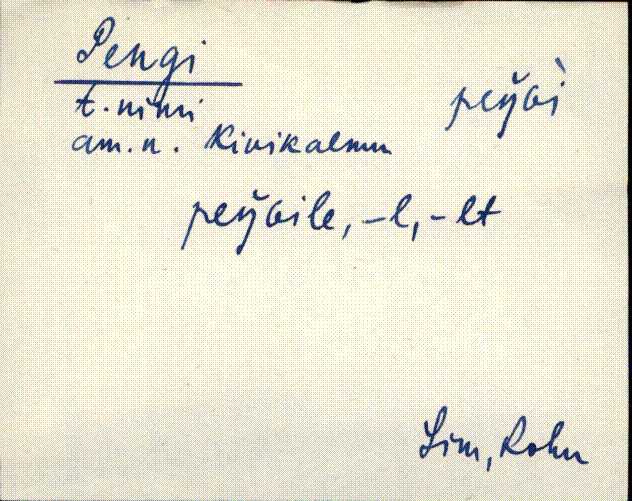 Pengi
t. nimi
peŋ̆G̀i
am. n. Kivikalmu
peŋ̆Gile, -l, -lt
Sim, Rohu